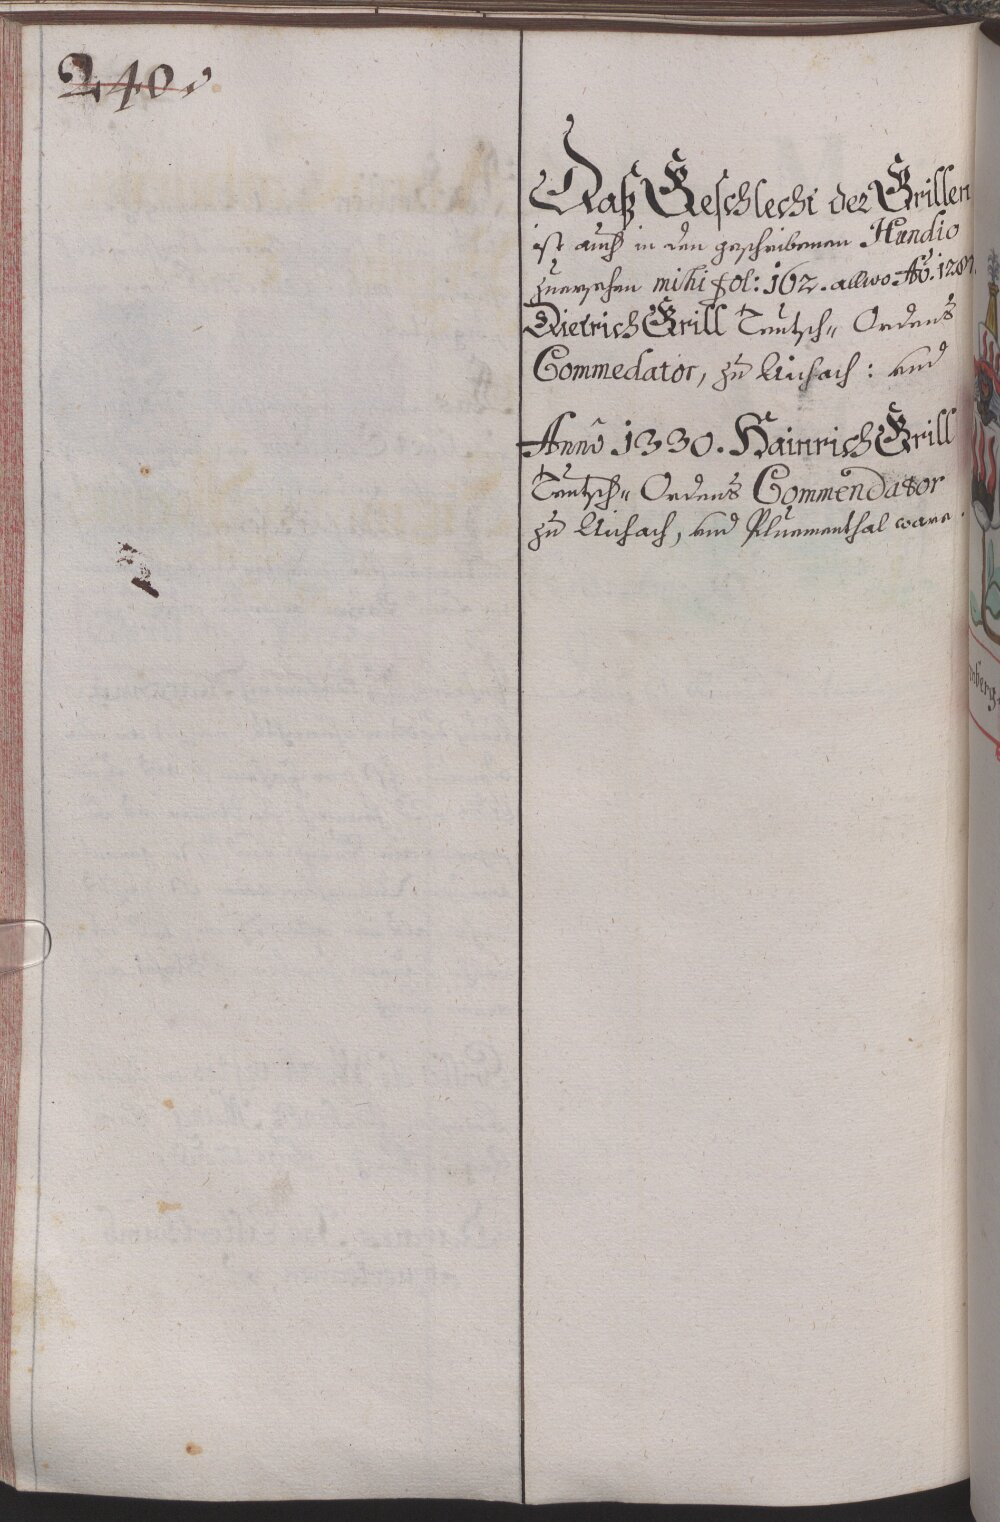 240.
Daß Geschlecht der Grillen
ist auch in den geschribenen Hundio
zuersehen mihi fol: 162. allwo Aō. 1287.
Dietrich Grill Teutsch„ Ordens
Commedator, zu Aichach: und
Anno 1330. Hainrich Grill
Teutsch„ Ordens Commendator
zu Aichach, und Pluementhal ware.